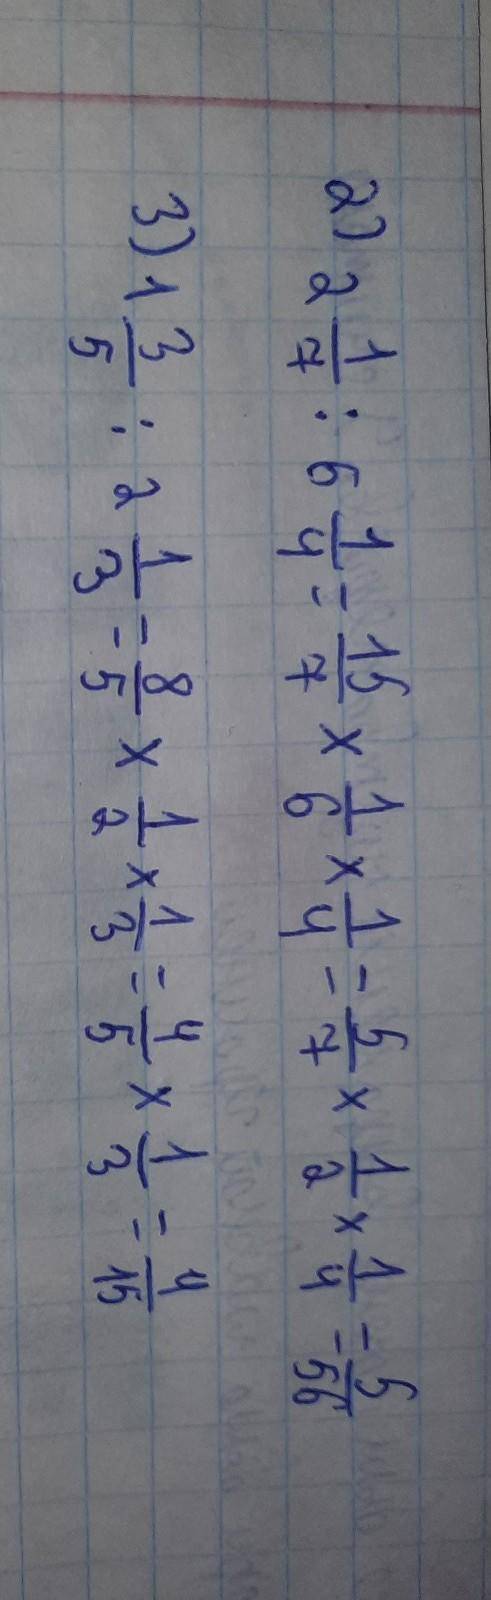 2) 2 1/7 : 6 1/4 = 15/7 × 1/6 × 1/4 = 5/7 × 1/2 × 1/4 = 5/56
3) 1 3/5 : 2 1/3 = 8/5 × 1/2 × 1/3 = 4/5 × 1/3 = 4/15